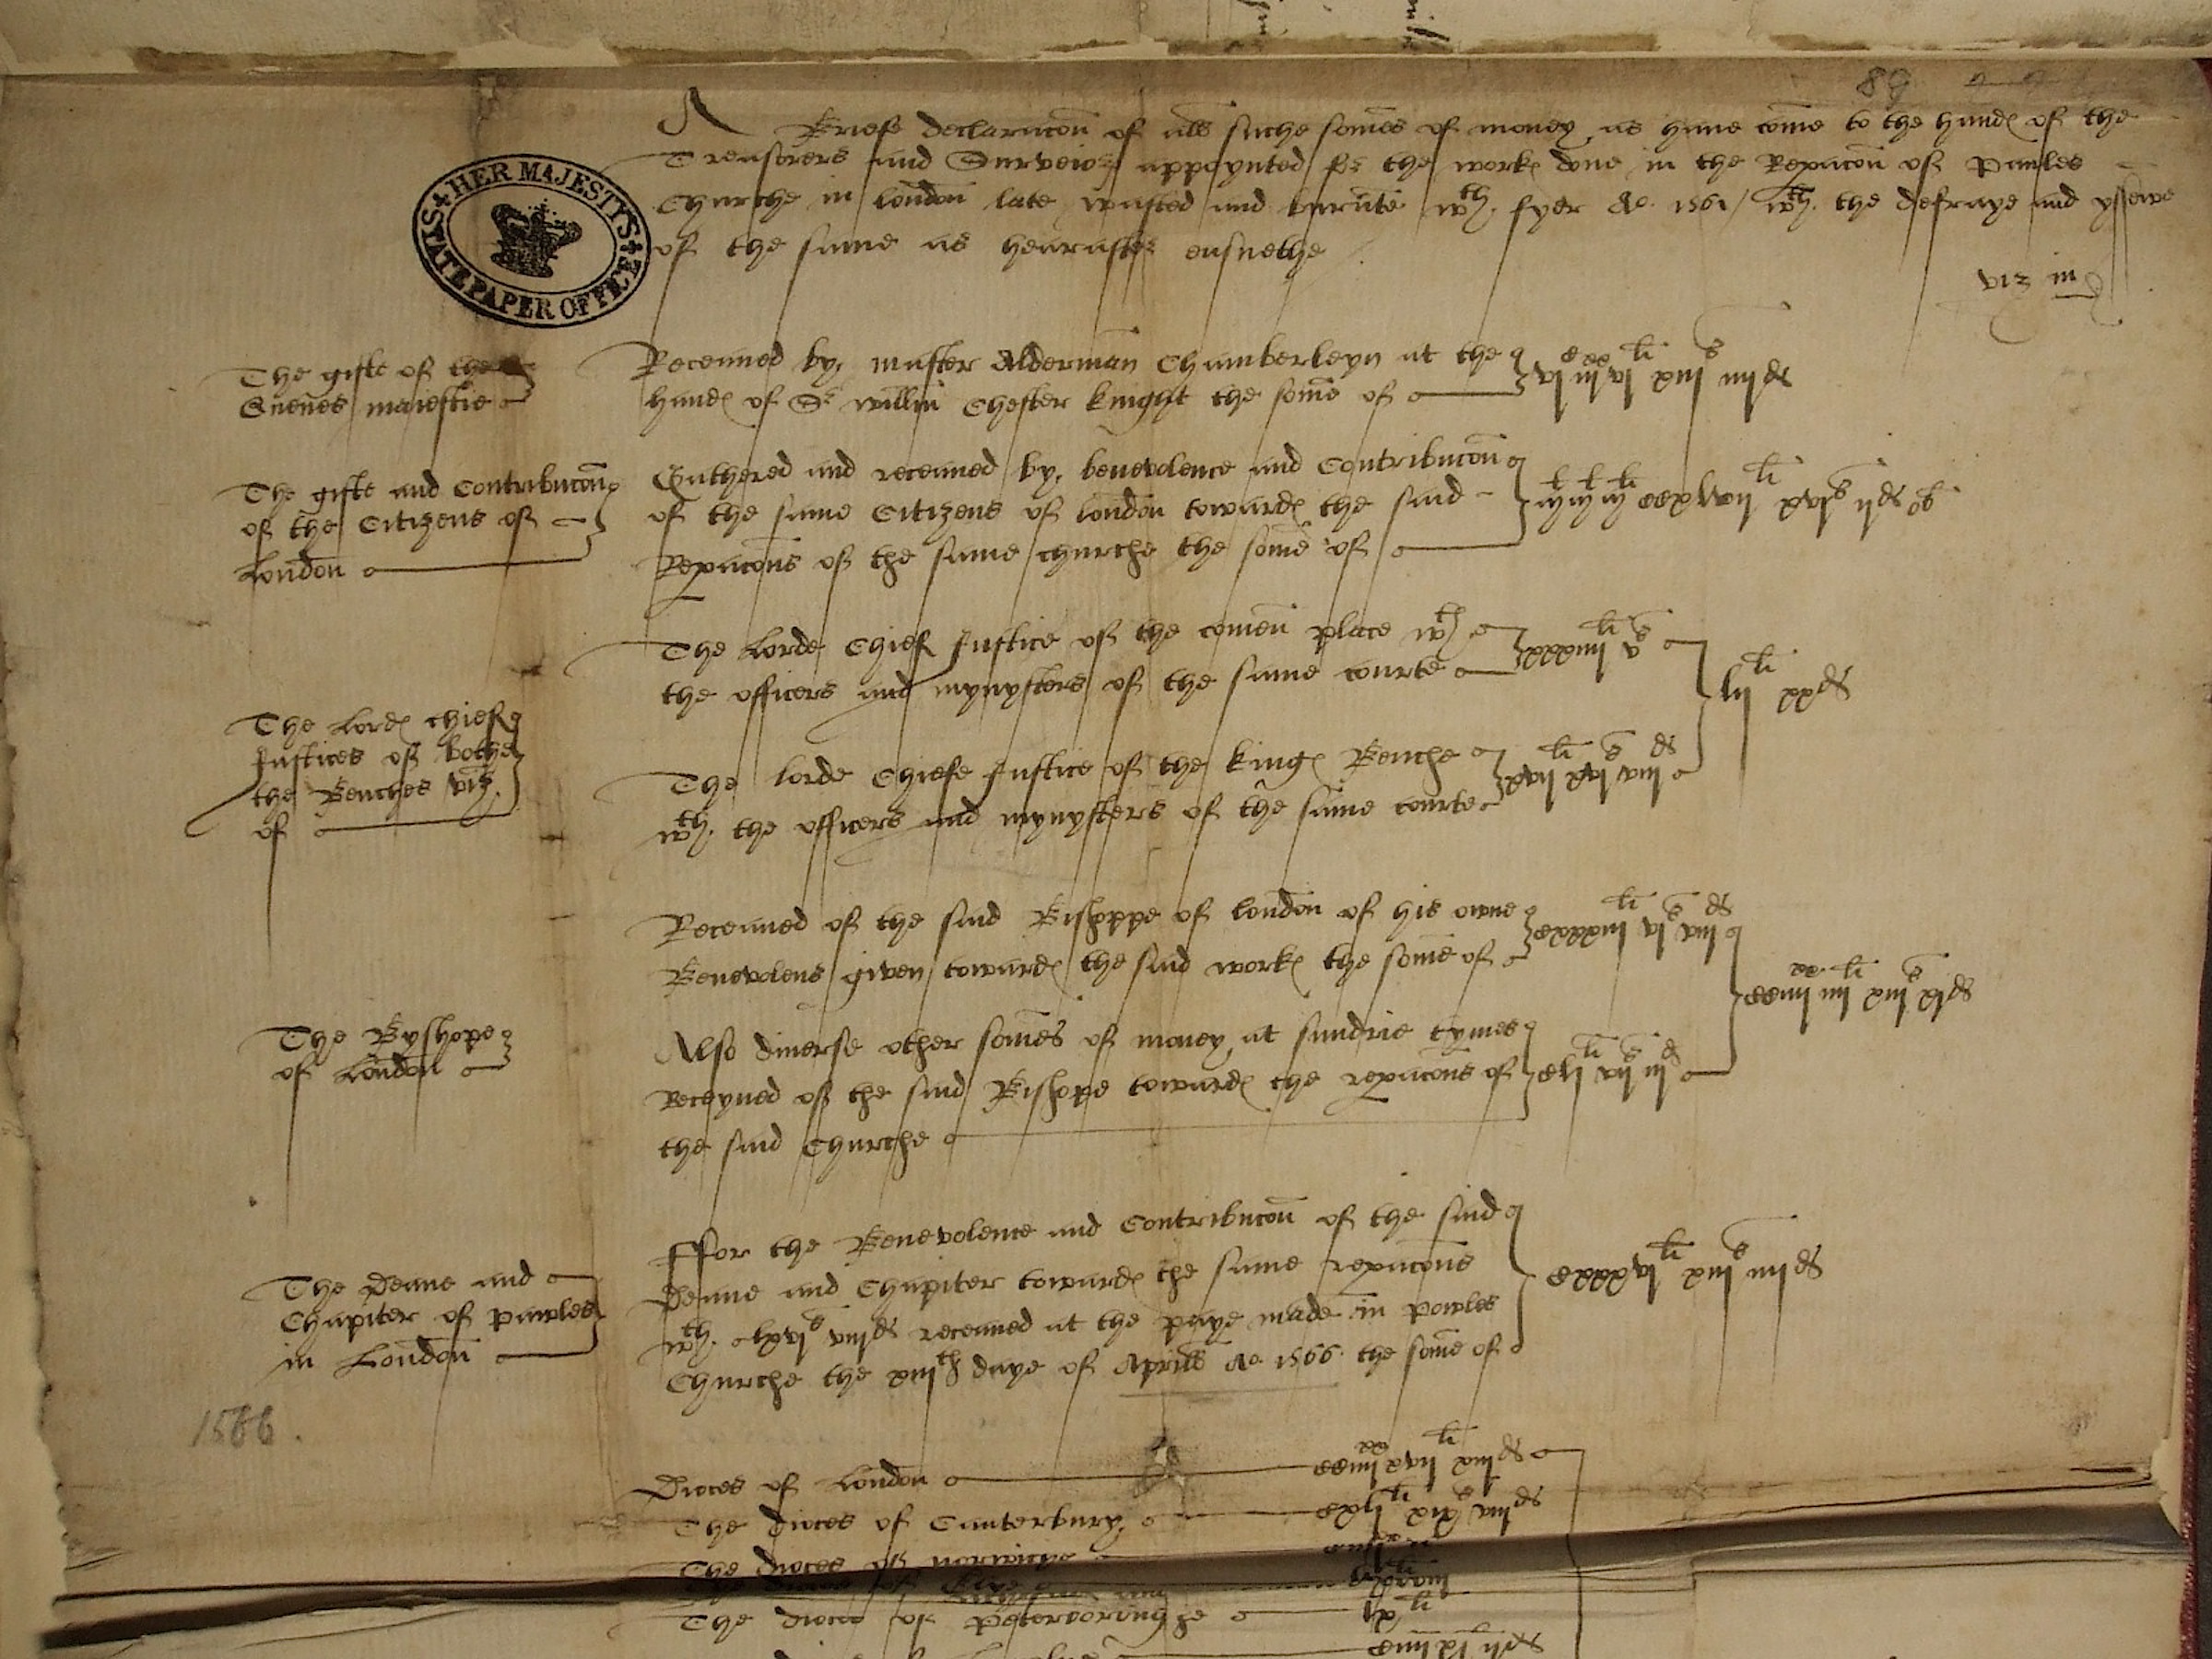 89
A Briefe declaracon of all suche somes of money as haue come to the hand of the
Treasorers and Surveior appoynted for the work done in the Repacon of Paules
Churche in london late wasted and burnte wth fyer Ao 1561 / wth the defraye and yssewe
of the same as hearafter ensuethe
viz in
HER MAJESTY'S
STATE PAPER OFFICE
The gifte of the
Quenes maiestie
Receaued by master Alderman Chamberleyn at the
hand of Sr willm Chester knight the some of
xiii iiii d
The gifte and Contribucon
of the Citizens of
London
Gathered and receaued by benevolence and Contribucon
of the same Citizens of london toward the said
Repacons of the same churche the some of
xvi s ii d ob
The Lord chief
Justices of bothe
the Benches viz.
of
The Lorde Chief Justice of the comen place wth
the officers and mynysters of the same courte
xxxiiii li v s
The lorde Chiefe Justice of the king Benche
wth the officers and mynysters of the same courte
xvii li xvi s viii d
lii li xx d
The Byshope
of London
Receaued of the said Bishoppe of london of his owne
Benevolens given toward the said work the some of
cxxxiii li vi s viii d
Also diuerse other somes of money at sundrie tymes
Receyued of the said Bishope toward the repacons of
the said Churche
xiii s xi d
The Deane and
Chapiter of pawles
in London
ffor the Benevolence and Contribucon of the said
Deane and Chapiter toward the same repacons
wth lxvi s viii d receaued at the paye made in powles
Churche the xiiith daye of Aprill Ao 1566 the some of
cxxxvi li xiii s iiii d
1566.
Dioces of London
The dioces of Canterbury
The dioces of norwiche
The dioces of Peterboroughe